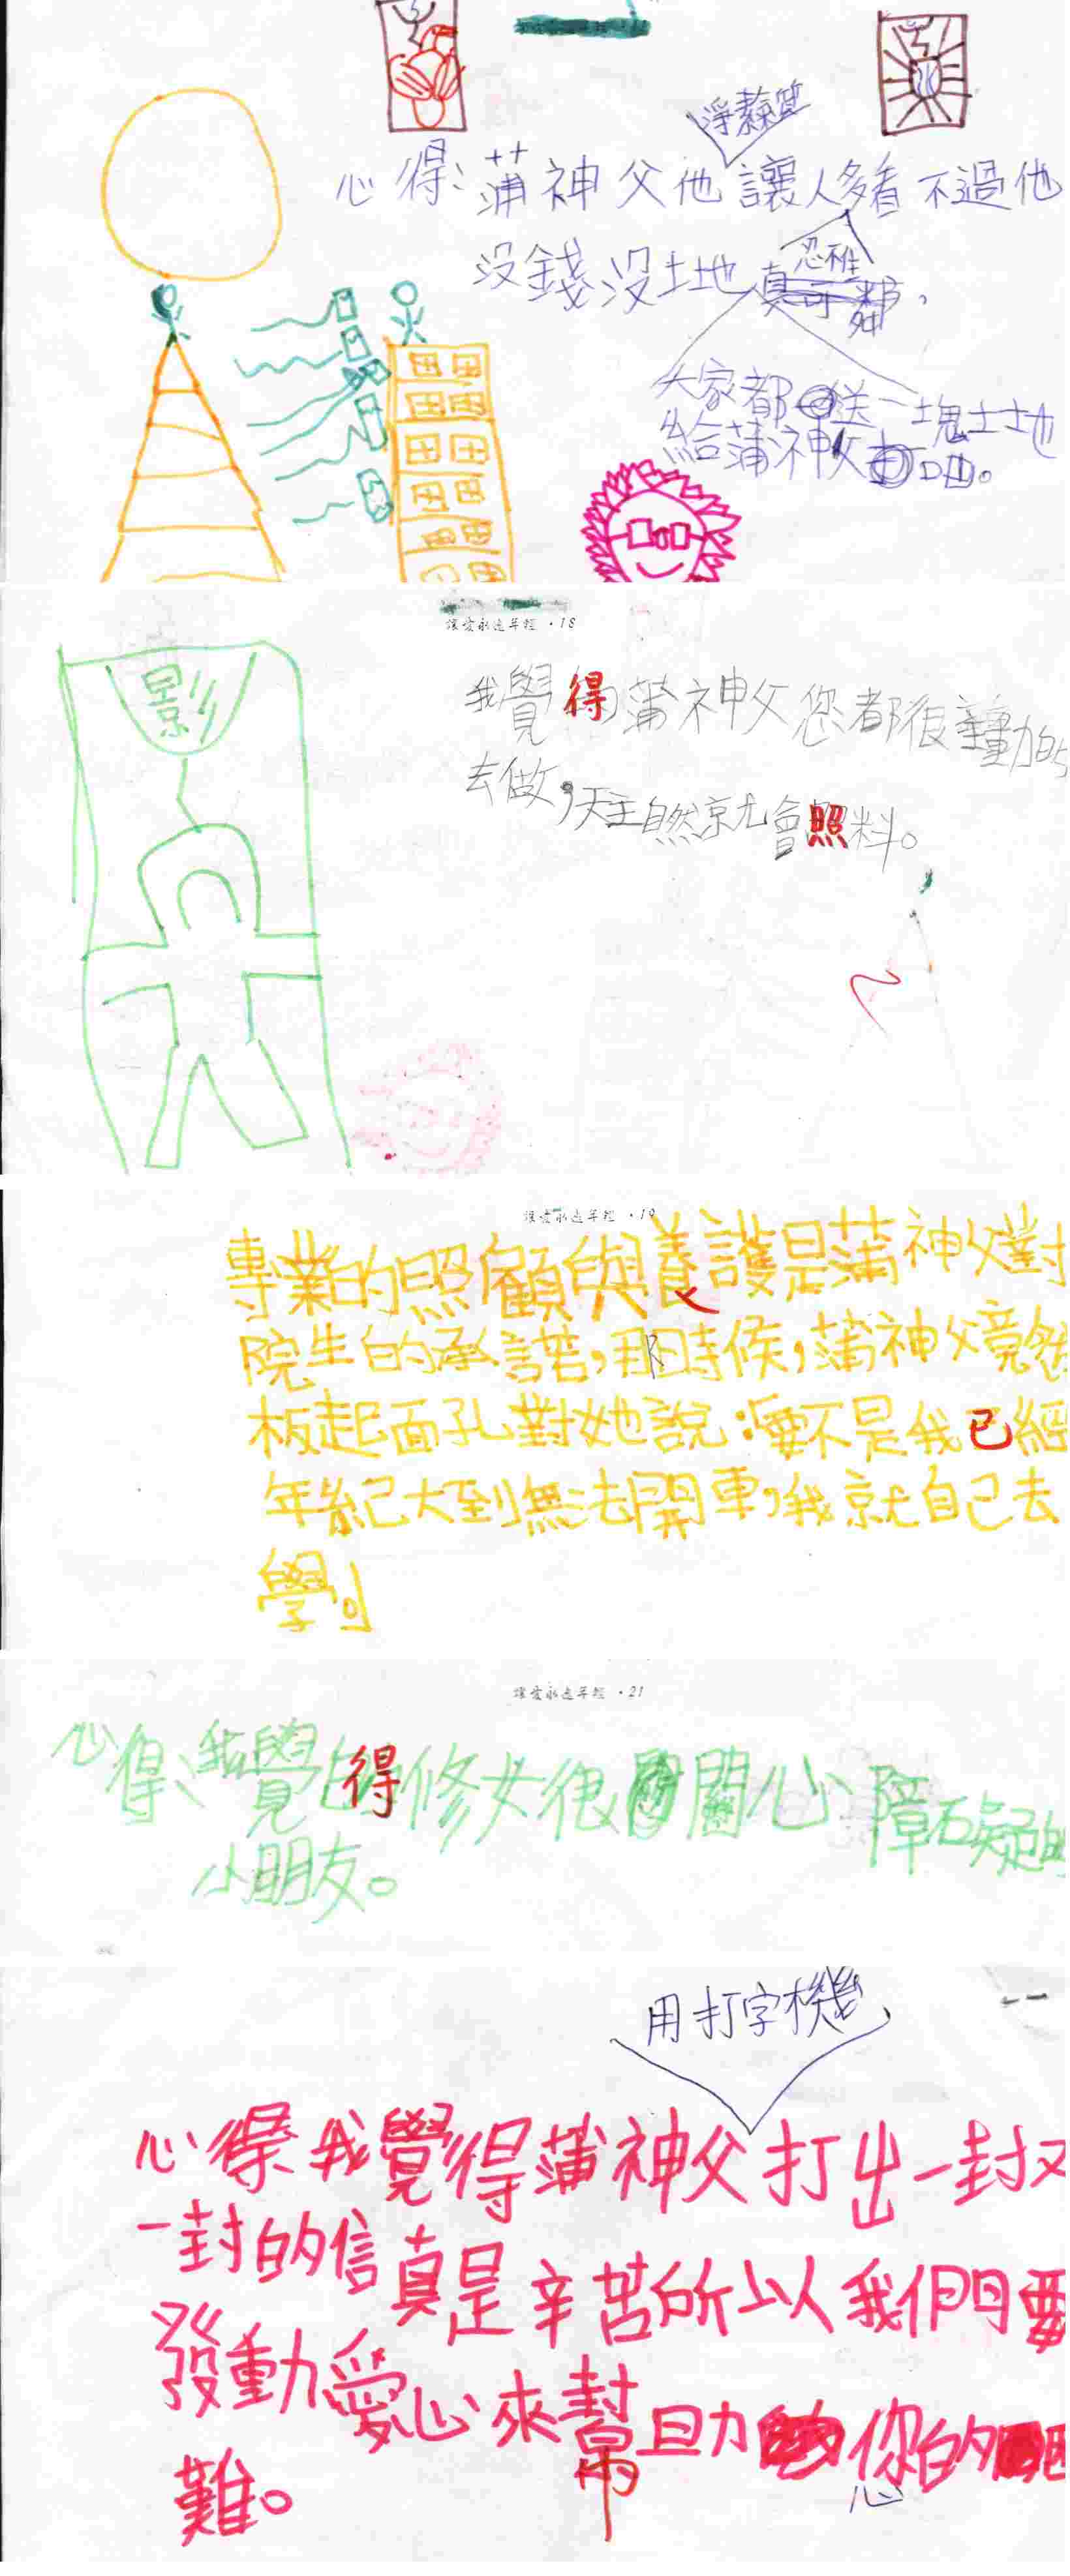 心得:蒲神父他讓人多看不過他
沒錢沒土地
忍不住
大家都送一塊土地
給蒲神父
讓愛永遠年輕·18
影
我覺得蒲神父您都很主動的
去做,天主自然就會照料。
讓愛永遠年輕·19
專業的照顧與養護是蒲神父對
院生的承諾,那時候,蒲神父竟然
板起面孔對她說:「要不是我已經
年紀大到無法開車,我就自己去
學。」
讓愛永遠年輕·21
心得、我覺得修女很關心障礙的
小朋友。
用打字機
心得 我覺得蒲神父打出一封又
一封的信真是辛苦所以我們要
發動愛心來幫助您的
難。